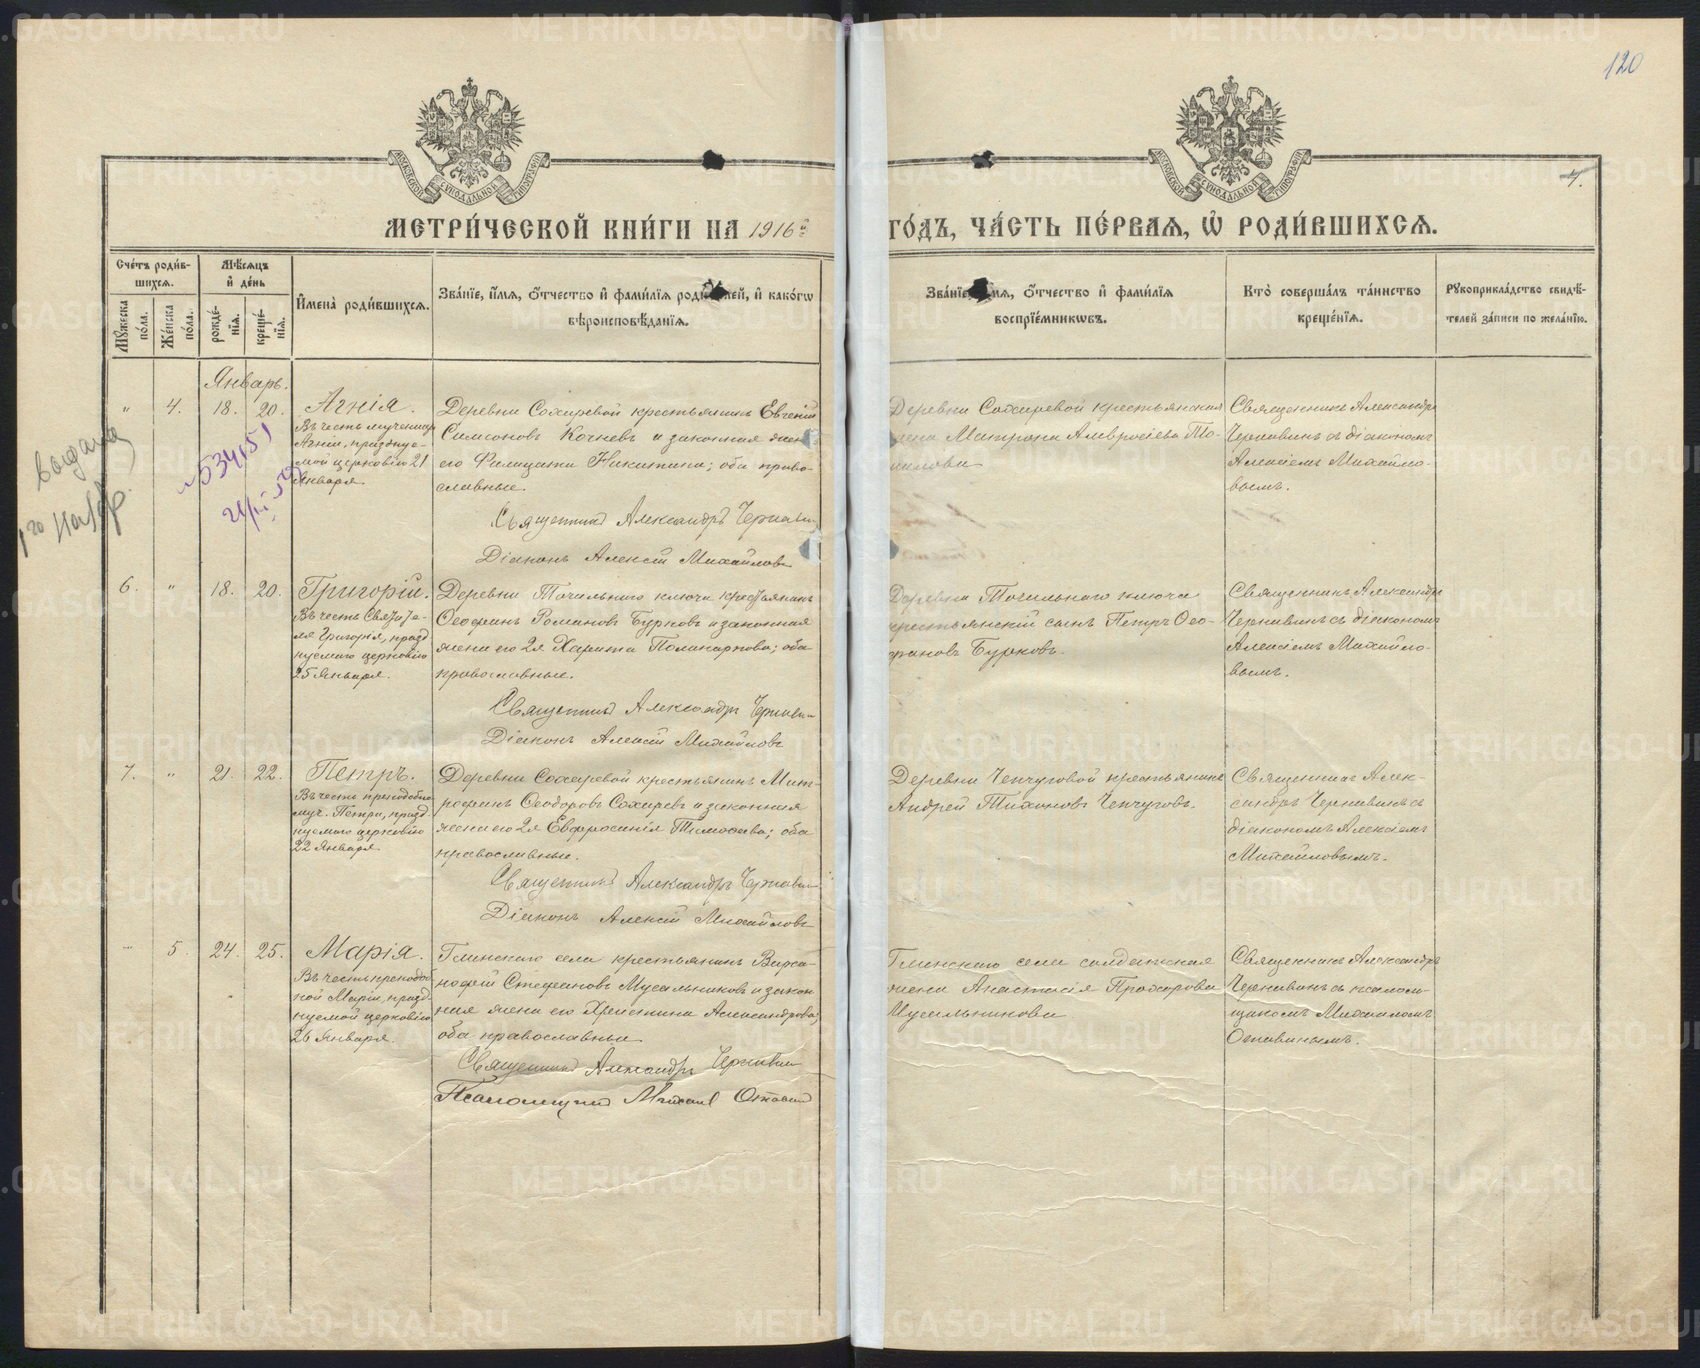 120
4.
МЕТРИ́ЧЕСКОЙ КНИ́ГИ НА 1916й
ГО́ДЪ, ЧА́СТЬ ПЕ́РВАЯ, Ѡ҆ РОДИ́ВШИХСЯ.
Сче́тъ роди́в-
шихся.
Мꙋ́жеска по́ла.
Же́нска по́ла.
Мѣ́сяцъ
и҆ де́нь
рожде́-
нїѧ.
креще́-
нїѧ.
И҆мена̀ роди́вшихся.
Зва́нїе, и҆́мя, ѻ҆́тчество и҆ фами́лїя роди́телей, и҆ како́гѡ
вѣроисповѣ́данїя.
Зва́нїе, и҆́мя, ѻ҆́тчество и҆ фами́лїя
воспрїе́мникѡвъ.
Кто̀ соверша́лъ та́инство
креще́нїя.
Рꙋкоприкла́дство свидѣ́-
телей за́писи по жела́нїю.
Январь.
" 4. 18. 20. Агнія.
Въ честь мученицы
Агніи, праздnуе-
мой церковію 21
Января.
Деревни Сохаревой крестьянинъ Евгеній
Симсоновъ Кочневъ и законная жена
его Фелицата Никитина; оба право-
славные.
Священникъ Александръ Чернавин
Діаконъ Алексій Михайловъ
Деревни Сохаревой крестьянская
жена Матрона Амвросіева То-
милова
Священникъ Александръ
Чернавинъ съ діакономъ
Алексіемъ Михайло-
вымъ.
выдана
1го
6. " 18. 20. Григорій.
Въ честь Святите-
ля Григорія, празд
нуемаго церковію
25 Января.
Деревни Точильнаго ключа крестьянинъ
Ѳеофанъ Романовъ Бурковъ и законная
жена его 2я Харита Поликарпова; оба
православные.
Священникъ Александръ Чернавин
Діаконъ Алексій Михайловъ
Деревни Точильнаго ключа
крестьянскій сынъ Петръ Ѳео-
фановъ Бурковъ.
Священникъ Александръ
Чернавинъ съ діакономъ
Алексіемъ Михайло-
вымъ.
7. " 21. 22. Петръ.
Въ честь преподобно
муч. Петра, празд
нуемаго церковію
22 Января
Деревни Сохаревой крестьянинъ Мит-
рофанъ Ѳеодоровъ Сохаревъ и законная
жена его 2я Евфросинія Тимофеева; оба
православные.
Священникъ Александръ Чернавин
Діаконъ Алексій Михайловъ
Деревни Чепчуговой крестьянинъ
Андрей Тихоновъ Чепчуговъ.
Священникъ Алек-
сандръ Чернавинъ съ
діакономъ Алексіемъ
Михайловымъ.
" 5. 24. 25. Марія.
Въ честь преподоб
ной Маріи, празд
нуемой церковію
26 Января.
Глинскаго села крестьянинъ Варса-
нофій Стефановъ Мусальниковъ и закон
ная жена его Христина Александрова;
оба православные
Священникъ Александръ Чернавин
Псаломщикъ Михаил Отавин
Глинскаго села солдатская
жена Анастасія Прохорова
Мусальникова
Священникъ Александръ
Чернавинъ съ псалом-
щикомъ Михаиломъ
Отавинымъ.
METRIKI.GASO-URAL.RU